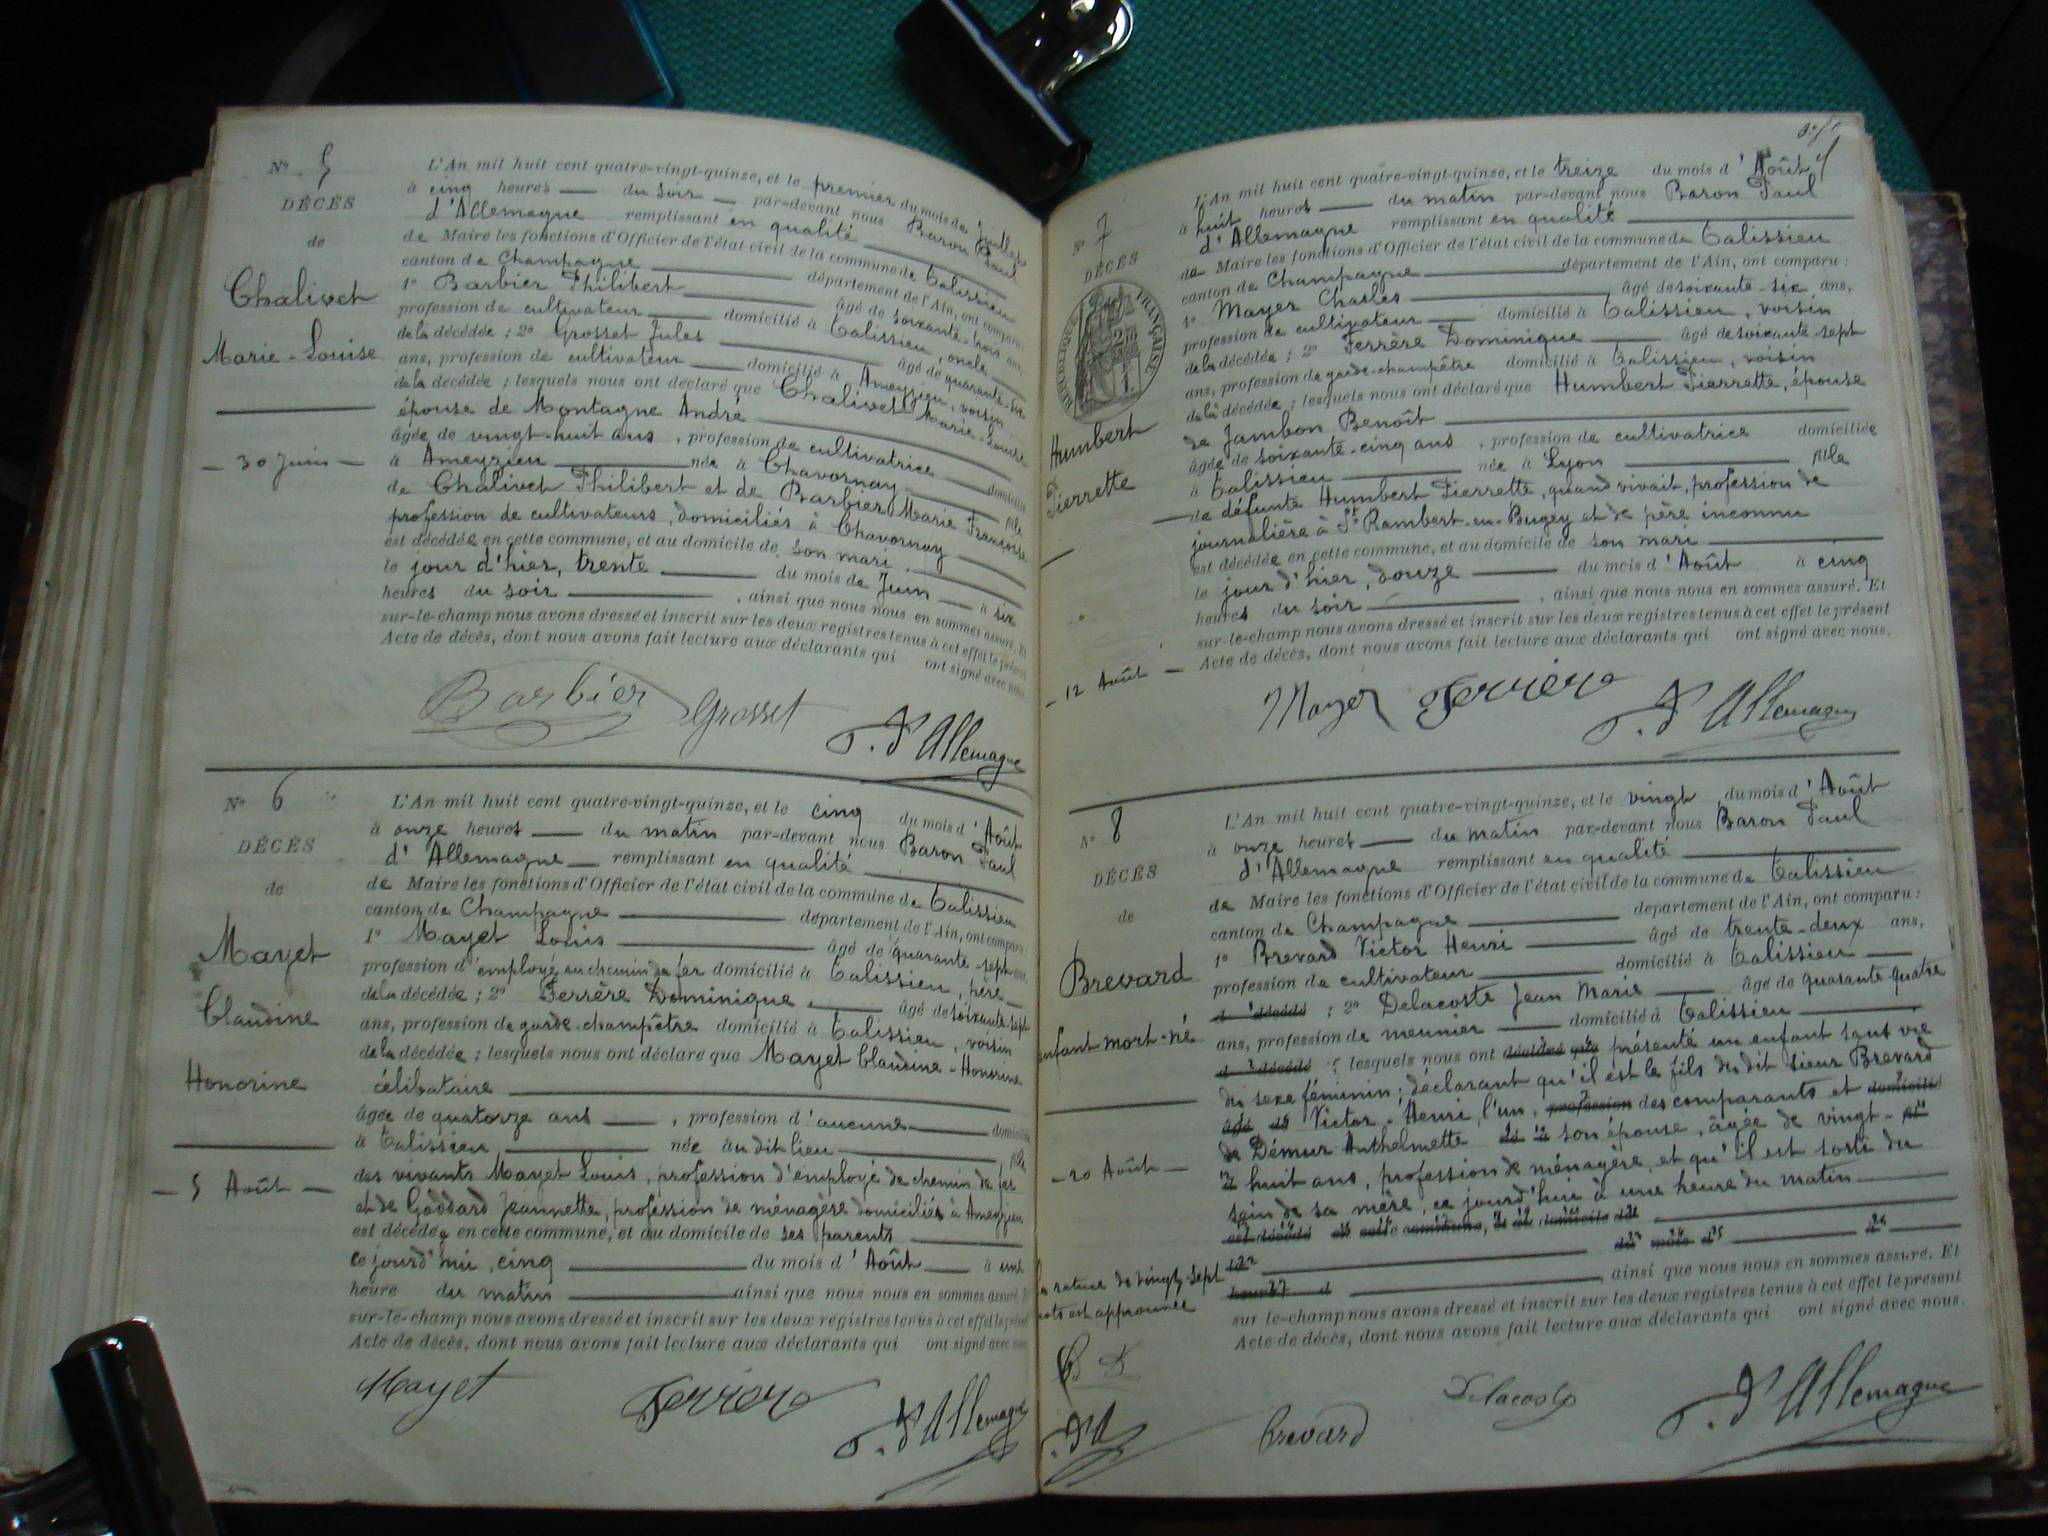 Nº 5
DÉCÈS
de
Chalivet
Marie-Louise
30 Juin
L'An mil huit cent quatre-vingt-quinze, et le premier du mois de Juillet
à cinq heures du soir par-devant nous Baron Paul
d'Allemagne remplissant en qualité
de Maire les fonctions d'Officier de l'état civil de la commune de Talissieu
canton de Champagne département de l'Ain, ont comparu
1º Barbier Philibert âgé de soixante-trois ans,
profession de cultivateur domicilié à Talissieu, oncle
de la décédée ; 2º Grosset Jules âgé de quarante-six
ans, profession de cultivateur domicilié à Ameyzieu, voisin
de la décédée ; lesquels nous ont déclaré que Chalivet Marie-Louise
épouse de Montagne André
âgée de vingt-huit ans, profession de cultivatrice domiciliée
à Ameyzieu née à Chavornay fille
de Chalivet Philibert et de Barbier Marie Françoise
profession de cultivateurs, domiciliés à Chavornay
est décédée en cette commune, et au domicile de son mari,
le jour d'hier, trente du mois de Juin à six
heures du soir, ainsi que nous nous en sommes assuré. Et
sur-le-champ nous avons dressé et inscrit sur les deux registres tenus à cet effet le présent
Acte de décès, dont nous avons fait lecture aux déclarants qui ont signé avec nous.
Barbier Grosset P. d'Allemagne
Nº 6
DÉCÈS
de
Mayet
Claudine
Honorine
5 Août
L'An mil huit cent quatre-vingt-quinze, et le cinq du mois d'Août
à onze heures du matin par-devant nous Baron Paul
d'Allemagne remplissant en qualité
de Maire les fonctions d'Officier de l'état civil de la commune de Talissieu
canton de Champagne département de l'Ain, ont comparu :
1º Mayet Louis âgé de quarante-sept ans,
profession d'employé au chemin de fer domicilié à Talissieu, père
de la décédée ; 2º Ferrère Dominique, âgé de soixante-sept
ans, profession de garde-champêtre domicilié à Talissieu, voisin
de la décédée ; lesquels nous ont déclaré que Mayet Claudine-Honorine
célibataire
âgée de quatorze ans, profession d'aucune domiciliée
à Talissieu née audit lieu fille
des vivants Mayet Louis, profession d'employé de chemin de fer
et de Goddard Jeannette, profession de ménagère domiciliés à Ameyzieu
est décédée en cette commune, et au domicile de ses parents
ce jourd'hui, cinq du mois d'Août à une
heure du matin ainsi que nous nous en sommes assuré. Et
sur-le-champ nous avons dressé et inscrit sur les deux registres tenus à cet effet le présent
Acte de décès, dont nous avons fait lecture aux déclarants qui ont signé avec nous.
Mayet Ferrère P. d'Allemagne
Nº 7
DÉCÈS
RÉPUBLIQUE FRANÇAISE
Humbert
Pierrette
12 Août
L'An mil huit cent quatre-vingt-quinze, et le treize du mois d'Août
à huit heures du matin par-devant nous Baron Paul
d'Allemagne remplissant en qualité
de Maire les fonctions d'Officier de l'état civil de la commune de Talissieu
canton de Champagne département de l'Ain, ont comparu :
1º Mayer Charles âgé de soixante-six ans,
profession de cultivateur domicilié à Talissieu, voisin
de la décédée ; 2º Ferrère Dominique âgé de soixante-sept
ans, profession de garde-champêtre domicilié à Talissieu, voisin
de la décédée ; lesquels nous ont déclaré que Humbert Pierrette, épouse
de Jambon Benoît
âgée de soixante-cinq ans, profession de cultivatrice domiciliée
à Talissieu née à Lyon fille
de défunte Humbert Pierrette, quand vivait, profession de
journalière à St Rambert-en-Bugey et de père inconnu
est décédée en cette commune, et au domicile de son mari
le jour d'hier, douze du mois d'Août à cinq
heures du soir, ainsi que nous nous en sommes assuré. Et
sur-le-champ nous avons dressé et inscrit sur les deux registres tenus à cet effet le présent
Acte de décès, dont nous avons fait lecture aux déclarants qui ont signé avec nous.
Mayer Ferrère P. d'Allemagne
Nº 8
DÉCÈS
de
Brevard
enfant mort-né
20 Août
la rature de vingt-sept
mots est approuvée
B D
P. d'A
L'An mil huit cent quatre-vingt-quinze, et le vingt du mois d'Août
à onze heures du matin par-devant nous Baron Paul
d'Allemagne remplissant en qualité
de Maire les fonctions d'Officier de l'état civil de la commune de Talissieu
canton de Champagne département de l'Ain, ont comparu :
1º Brevard Victor Henri âgé de trente-deux ans,
profession de cultivateur domicilié à Talissieu
d décédé ; 2º Delacoste Jean Marie âgé de quarante quatre
ans, profession de meunier domicilié à Talissieu
d décédé ; lesquels nous ont déclaré que présenté un enfant sans vie
du sexe féminin ; déclarant qu'il est le fils du dit sieur Brevard
âgé de Victor-Henri, l'un, profession des comparants et domicilié
de Démur Anthelmette son épouse, âgée de vingt-
huit ans, profession de ménagère, et qu'il est sorti du
sein de sa mère, ce jourd'hui à une heure du matin
est décédé en cette commune, et au domicile de
du mois d
heures d, ainsi que nous nous en sommes assuré. Et
sur le-champ nous avons dressé et inscrit sur les deux registres tenus à cet effet le présent
Acte de décès, dont nous avons fait lecture aux déclarants qui ont signé avec nous.
Brevard Delacoste P. d'Allemagne